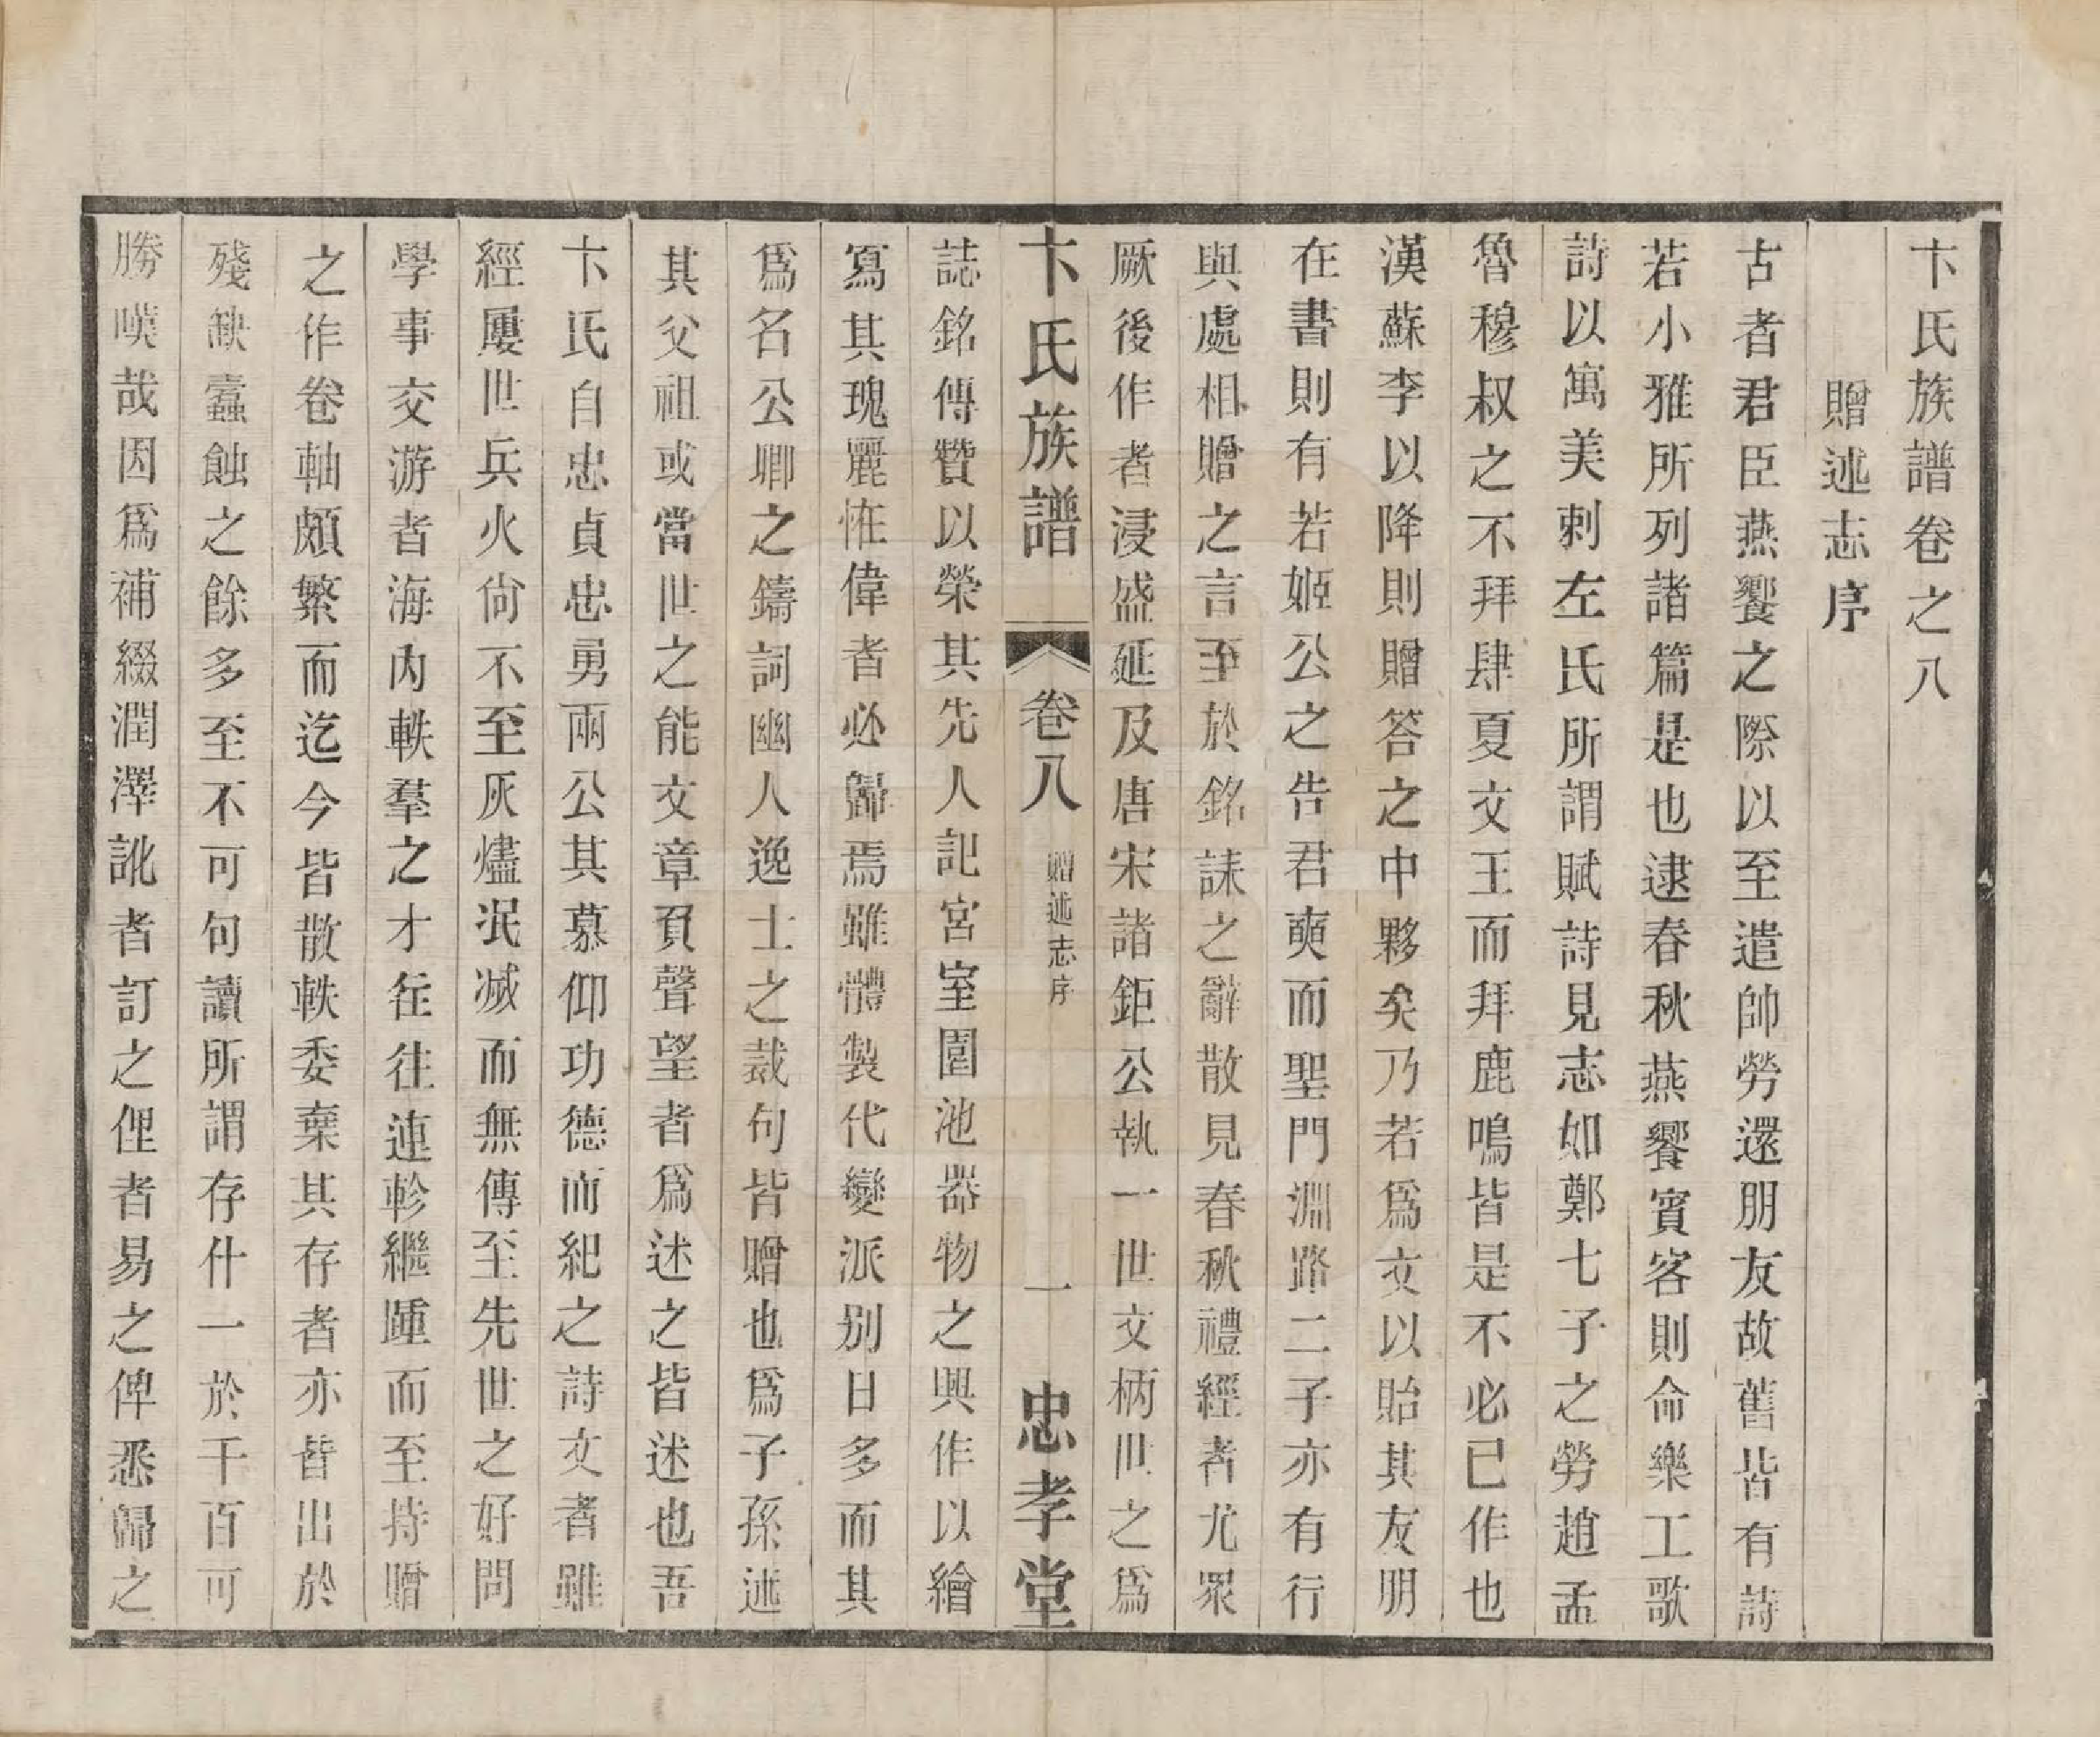 卞氏族譜卷之八
贈述志序
古者君臣燕饗之際以至遣帥勞還朋友故舊皆有詩
若小雅所列諸篇是也逮春秋燕饗賓客則命樂工歌
詩以寓美刺左氏所謂賦詩見志如鄭七子之勞趙孟
魯穆叔之不拜肆夏文王而拜鹿鳴皆是不必已作也
漢蘇李以降則贈答之中夥矣乃若爲文以貽其友朋
在書則有若姬公之告君奭而聖門淵路二子亦有行
與處相贈之言至於銘誄之辭散見春秋禮經者尤眾
厥後作者浸盛延及唐宋諸鉅公執一世文柄世之爲
卞氏族譜 卷八 贈述志序 一 忠孝堂
誌銘傳贊以榮其先人記宮室園池器物之興作以繪
寫其瑰麗恠偉者必歸焉雖體製代變派别日多而其
爲名公卿之鑄詞幽人逸士之裁句皆贈也爲子孫述
其父祖或當世之能文章負聲望者爲述之皆述也吾
卞氏自忠貞忠勇兩公其慕仰功德而紀之詩文者雖
經屢世兵火尙不至灰燼泯滅而無傳至先世之好問
學事交游者海内軼羣之才徃往連軫繼踵而至持贈
之作卷軸頗繁而迄今皆散軼委棄其存者亦皆出於
殘缺蠹蝕之餘多至不可句讀所謂存什一於千百可
勝嘆哉因爲補綴潤澤訛者訂之俚者易之俾悉歸之